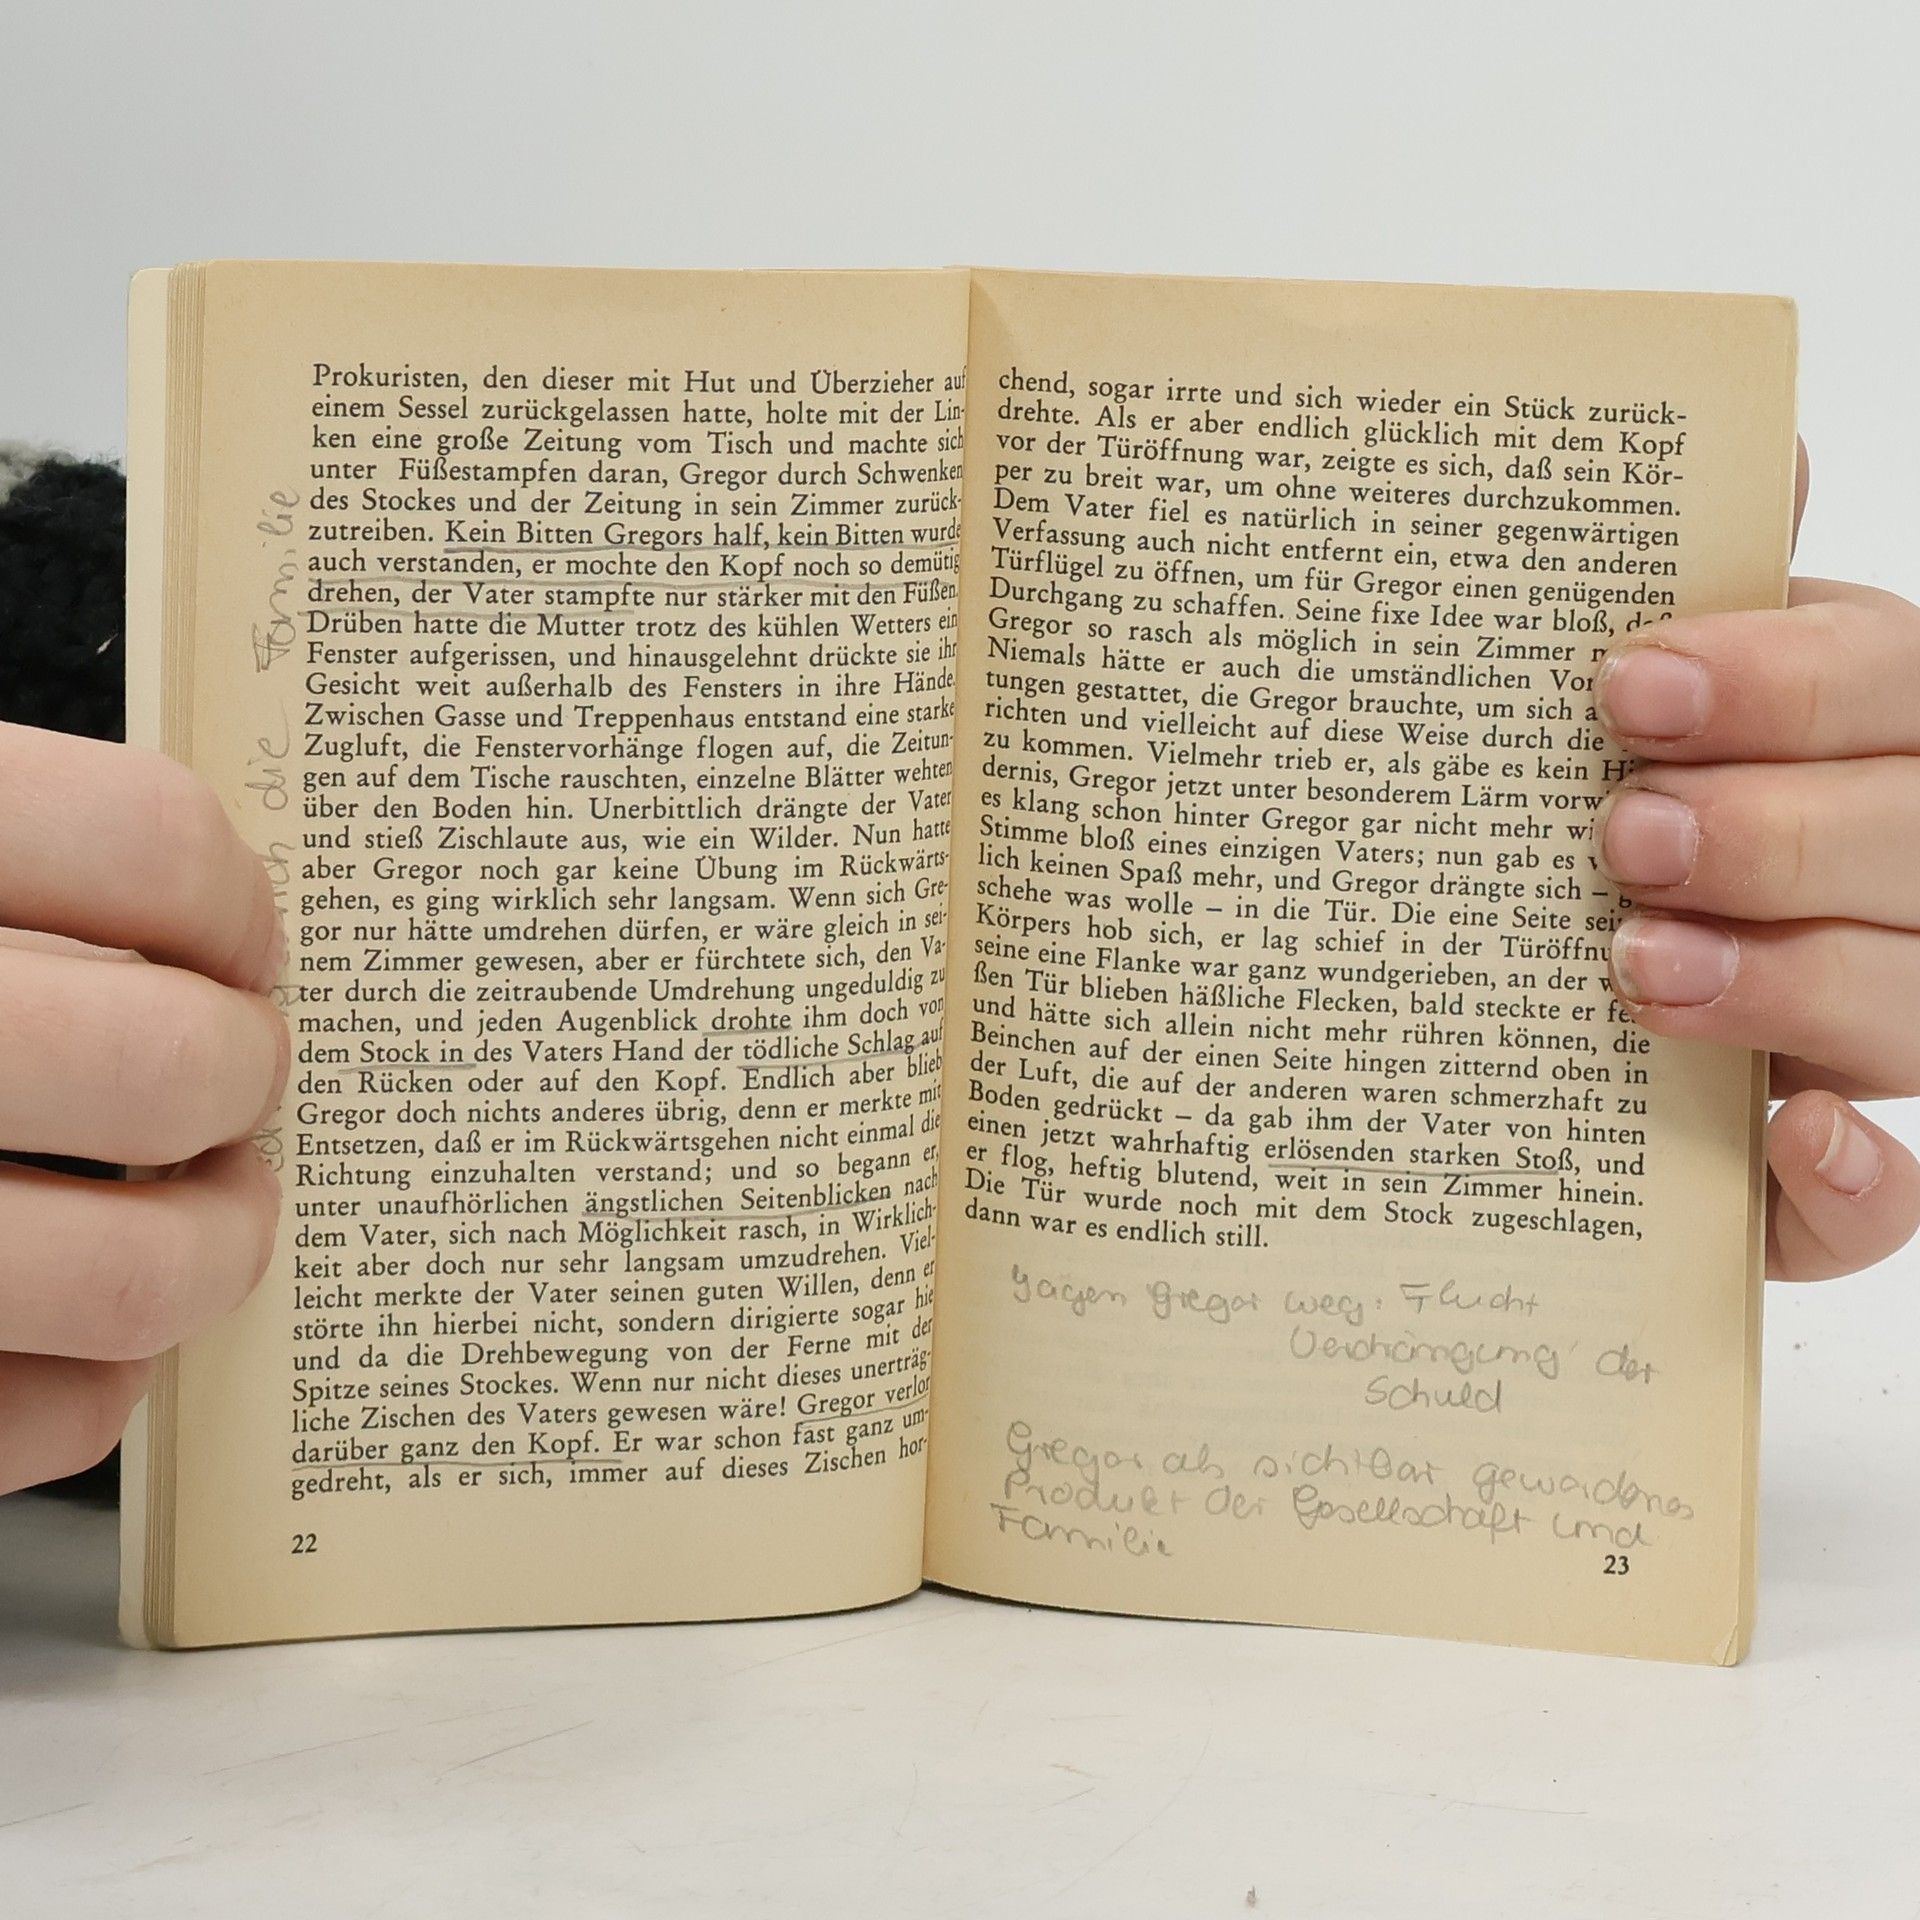 Prokuristen, den dieser mit Hut und Überzieher auf
einem Sessel zurückgelassen hatte, holte mit der Lin-
ken eine große Zeitung vom Tisch und machte sich
unter Füßestampfen daran, Gregor durch Schwenken
des Stockes und der Zeitung in sein Zimmer zurück-
zutreiben. Kein Bitten Gregors half, kein Bitten wurde
auch verstanden, er mochte den Kopf noch so demütig
drehen, der Vater stampfte nur stärker mit den Füßen.
Drüben hatte die Mutter trotz des kühlen Wetters ein
Fenster aufgerissen, und hinausgelehnt drückte sie ihr
Gesicht weit außerhalb des Fensters in ihre Hände.
Zwischen Gasse und Treppenhaus entstand eine starke
Zugluft, die Fenstervorhänge flogen auf, die Zeitun-
gen auf dem Tische rauschten, einzelne Blätter wehten
über den Boden hin. Unerbittlich drängte der Vater
und stieß Zischlaute aus, wie ein Wilder. Nun hatte
aber Gregor noch gar keine Übung im Rückwärts-
gehen, es ging wirklich sehr langsam. Wenn sich Gre-
gor nur hätte umdrehen dürfen, er wäre gleich in sei-
nem Zimmer gewesen, aber er fürchtete sich, den Va-
ter durch die zeitraubende Umdrehung ungeduldig zu
machen, und jeden Augenblick drohte ihm doch von
dem Stock in des Vaters Hand der tödliche Schlag auf
den Rücken oder auf den Kopf. Endlich aber blieb
Gregor doch nichts anderes übrig, denn er merkte mit
Entsetzen, daß er im Rückwärtsgehen nicht einmal die
Richtung einzuhalten verstand; und so begann er,
unter unaufhörlichen ängstlichen Seitenblicken nach
dem Vater, sich nach Möglichkeit rasch, in Wirklich-
keit aber doch nur sehr langsam umzudrehen. Viel-
leicht merkte der Vater seinen guten Willen, denn er
störte ihn hierbei nicht, sondern dirigierte sogar hie
und da die Drehbewegung von der Ferne mit der
Spitze seines Stockes. Wenn nur nicht dieses unerträg-
liche Zischen des Vaters gewesen wäre! Gregor verlor
darüber ganz den Kopf. Er war schon fast ganz um-
gedreht, als er sich, immer auf dieses Zischen hor-
22
die Familie
chend, sogar irrte und sich wieder ein Stück zurück-
drehte. Als er aber endlich glücklich mit dem Kopf
vor der Türöffnung war, zeigte es sich, daß sein Kör-
per zu breit war, um ohne weiteres durchzukommen.
Dem Vater fiel es natürlich in seiner gegenwärtigen
Verfassung auch nicht entfernt ein, etwa den anderen
Türflügel zu öffnen, um für Gregor einen genügenden
Durchgang zu schaffen. Seine fixe Idee war bloß, daß
Gregor so rasch als möglich in sein Zimmer
Niemals hätte er auch die umständlichen Vor
tungen gestattet, die Gregor brauchte, um sich a
richten und vielleicht auf diese Weise durch die
zu kommen. Vielmehr trieb er, als gäbe es kein Hi
dernis, Gregor jetzt unter besonderem Lärm vorw
es klang schon hinter Gregor gar nicht mehr wi
Stimme bloß eines einzigen Vaters; nun gab es
lich keinen Spaß mehr, und Gregor drängte sich – g
schehe was wolle – in die Tür. Die eine Seite sei
Körpers hob sich, er lag schief in der Türöffnu
seine eine Flanke war ganz wundgerieben, an der w
ßen Tür blieben häßliche Flecken, bald steckte er fe
und hätte sich allein nicht mehr rühren können, die
Beinchen auf der einen Seite hingen zitternd oben in
der Luft, die auf der anderen waren schmerzhaft zu
Boden gedrückt – da gab ihm der Vater von hinten
einen jetzt wahrhaftig erlösenden starken Stoß, und
er flog, heftig blutend, weit in sein Zimmer hinein.
Die Tür wurde noch mit dem Stock zugeschlagen,
dann war es endlich still.
jagen Gregor weg: Flucht
Verdrängung der
Schuld
Gregor als sichtbar gewordenes
Produkt der Gesellschaft und
Familie
23